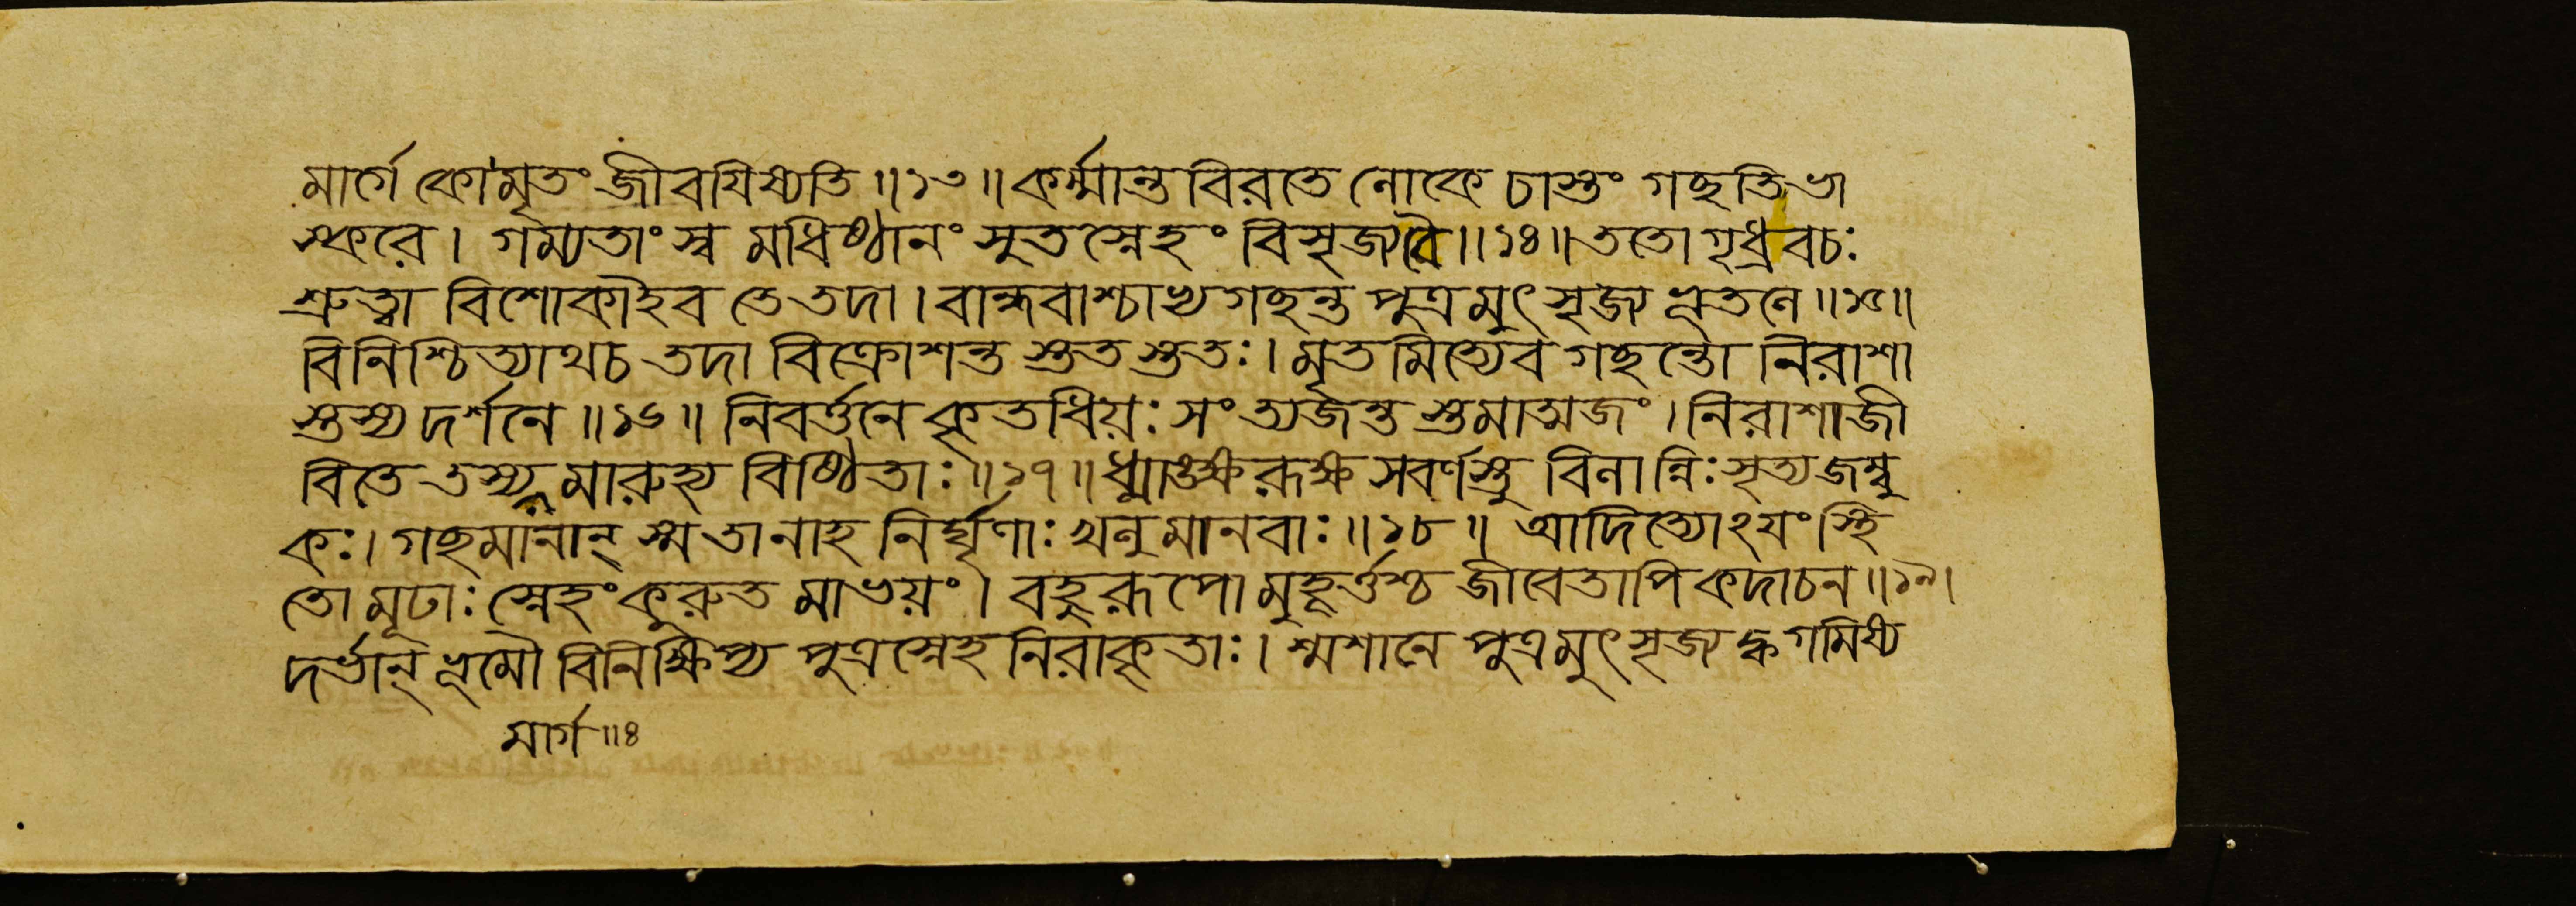 মার্গে কো মৃতং জীবযিষ্যতি॥১৩॥কর্ম্মান্তবিরতে লোকে চাস্তং গচ্ছতিভা
স্করে। গম্যতাং স্ব মধিষ্ঠানং সুতস্নেহং বিসৃজ্যবৈ॥১৪॥ততো গৃধ্রবচঃ
শ্রুত্বা বিশোকাইব তে তদা।বান্ধবাশ্চাথ্যগচ্ছন্ত পুত্রমুৎসৃজ্য ভূতলে॥১৫॥
বিনিশ্চিত্যাথচ তদা বিক্রোশন্ত স্ততস্ততঃ।মৃতমিত্যেব গচ্ছন্তো নিরাশা
স্তস্য দর্শনে॥১৬॥নিবর্ত্তনে কৃতধিয়ঃ সংত্যজন্ত স্তমাত্মজং।নিরাশাজী
বিতে তস্য মারুহ্য বিষ্ঠিতাঃ॥১৭॥ধ্মাঙক্ষরূক্ষ সবর্ণস্তু বিলান্নিঃসৃত্যজম্বু
কঃ।গচ্ছমানান্ স্ম তানাহ নির্ঘৃণাঃ খলু মানবাঃ॥১৮॥ আদিত্যোঽযংস্থি
তো মূঢাঃ স্নেহংকুরুত মাভয়ং। বহুরূপো মুহূর্ত্তশ্চ জীবেতাপি কদাচন॥১৯।
দর্ভান্ ভূমৌ বিনিক্ষিপ্য পুত্রস্নেহ নিরাকৃতাঃ।শ্মশানে পুত্রমুৎসৃজ্য দ্ধগমিষ্য
মার্গ॥৪